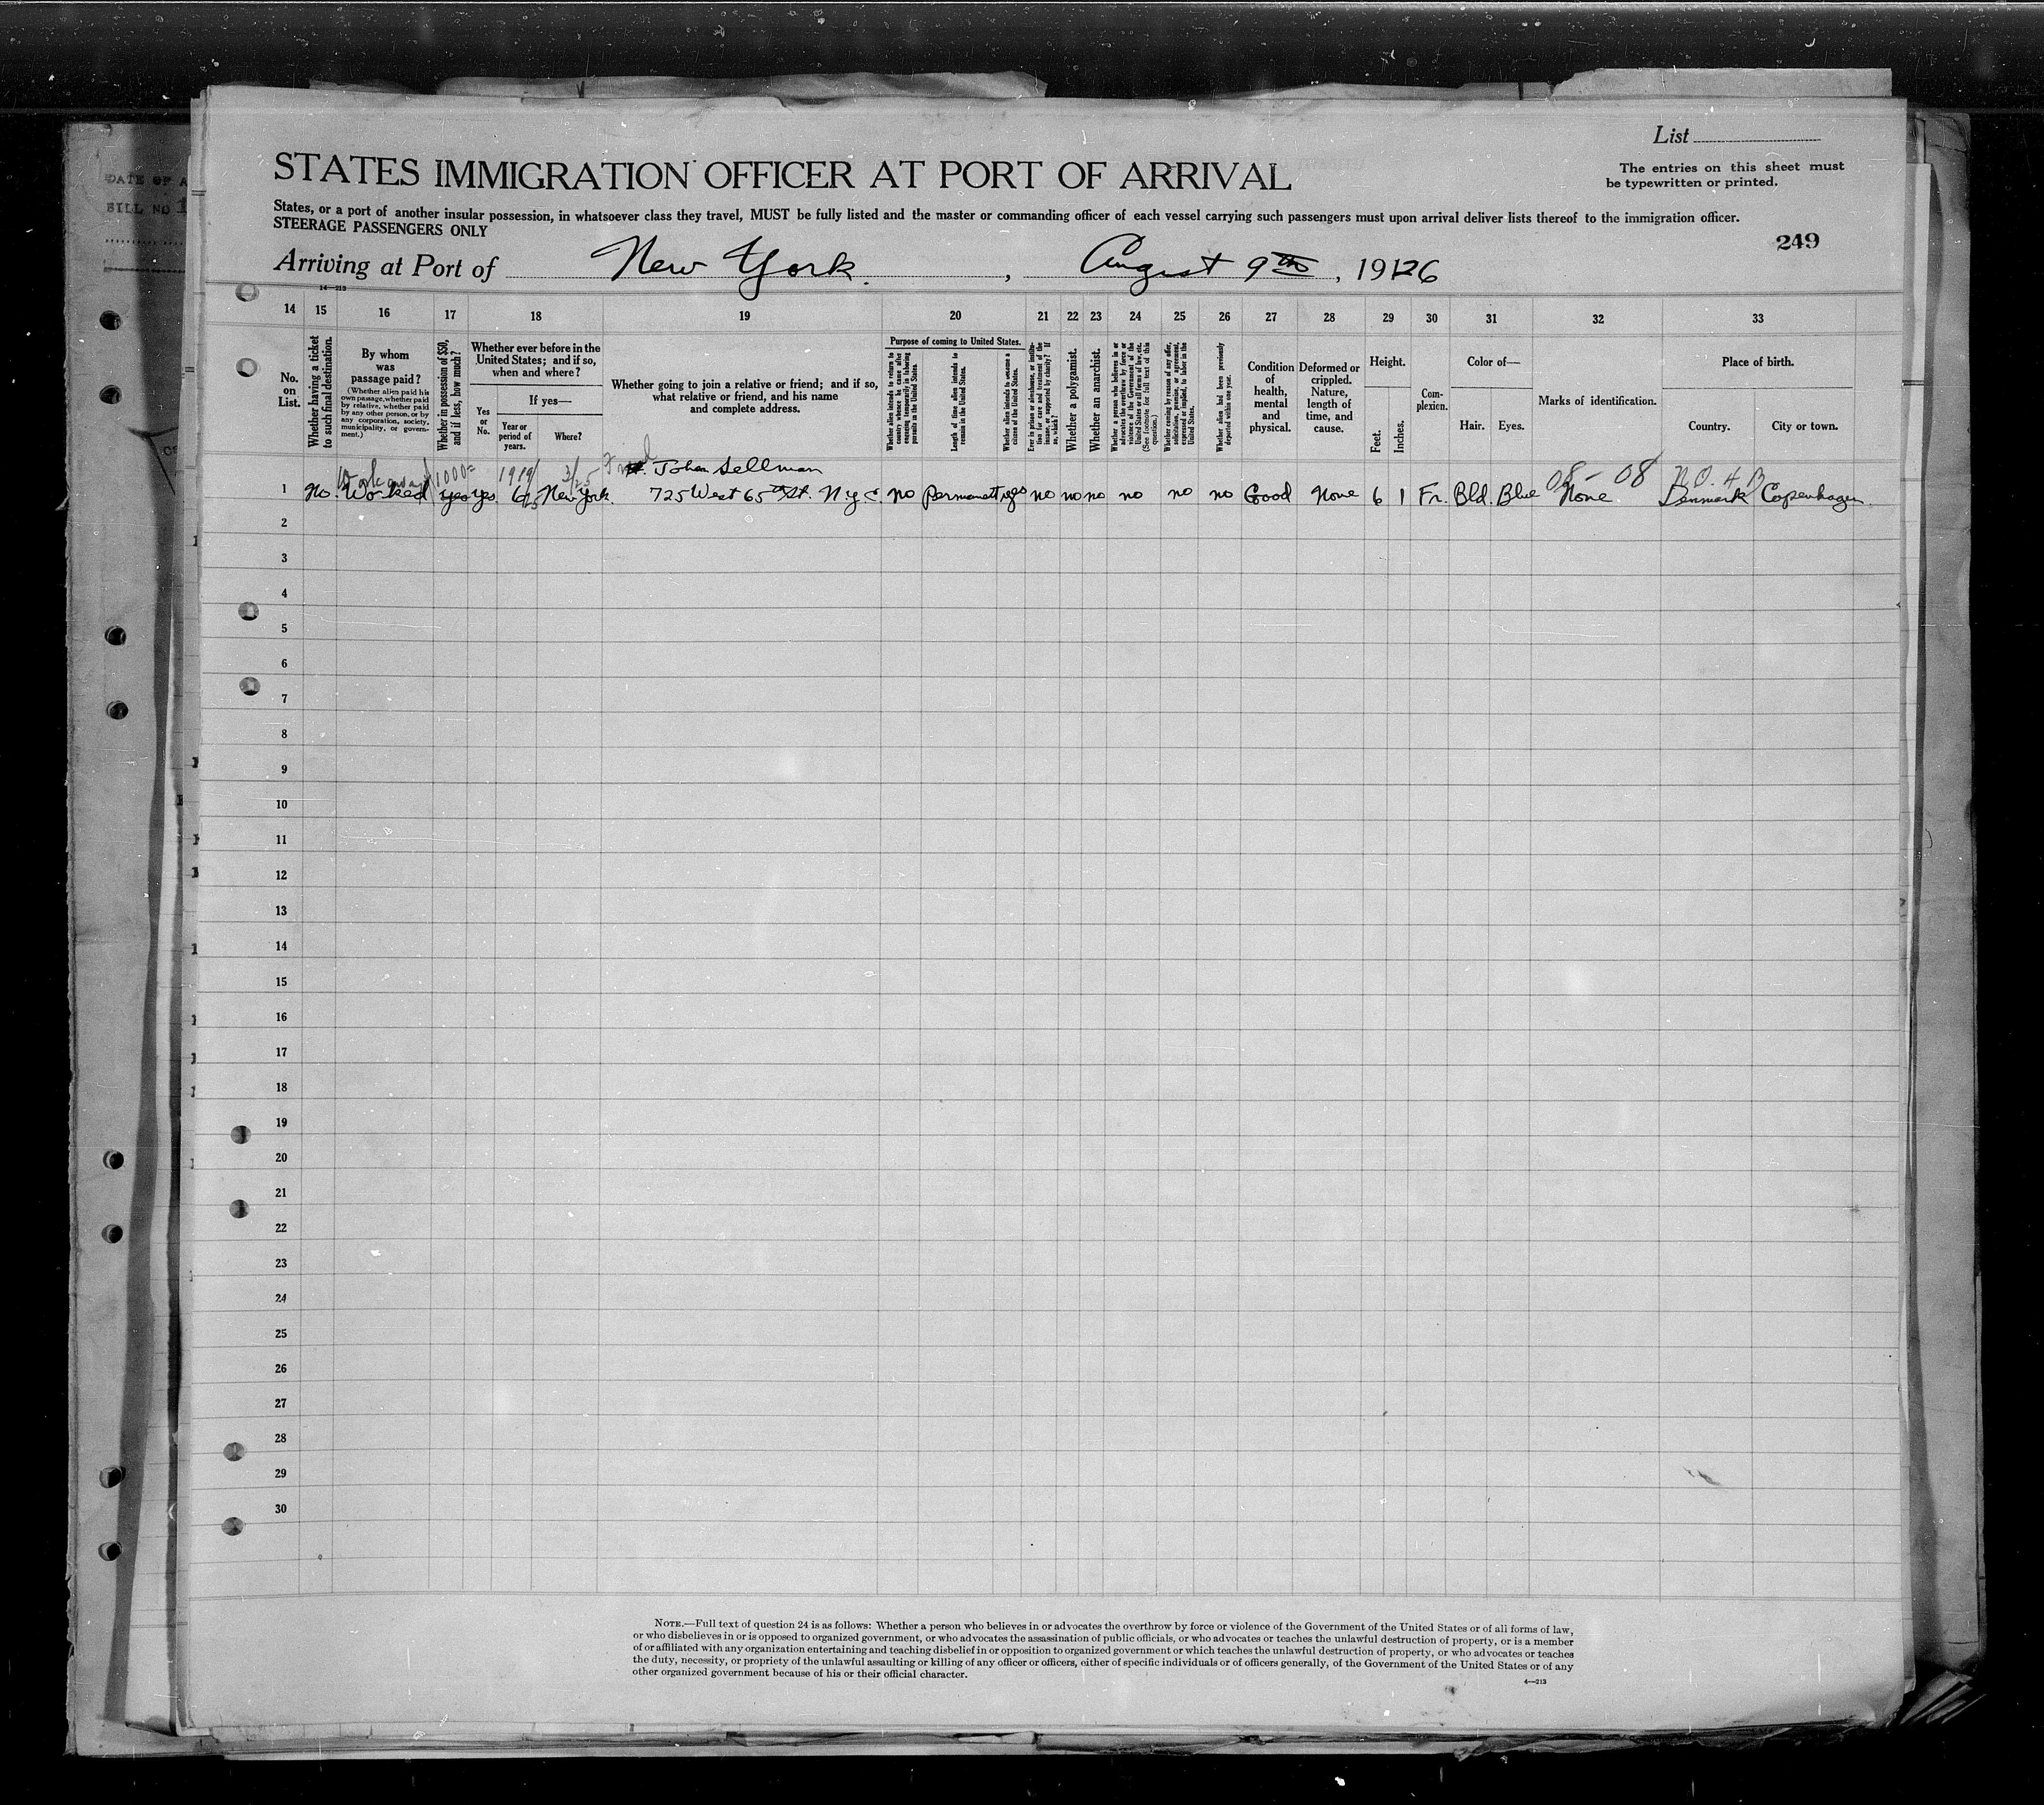 DATE OF A
BILL NO 1
List
The entries on this sheet must
be typewritten or printed.
STATES IMMIGRATION OFFICER AT PORT OF ARRIVAL
States, or a port of another insular possession, in whatsoever class they travel, MUST be fully listed and the master or commanding officer of each vessel carrying such passengers must upon arrival deliver lists thereof to the immigration officer.
STEERAGE PASSENGERS ONLY
249
Arriving at Port of New York, August 9th, 1926
14—213
14 15 16 17 18 19 20 21 22 23 24 25 26 27 28 29 30 31 32 33
No. on List.
Whether having a ticket to such final destination.
By whom was passage paid?
(Whether alien paid his own passage, whether paid by relative, whether paid by any other person, or by any corporation, society, municipality, or government.)
Whether in possession of $50, and if less, how much?
Whether ever before in the United States; and if so, when and where?
Yes or No.
If yes—
Year or period of years.
Where?
Whether going to join a relative or friend; and if so, what relative or friend, and his name and complete address.
Purpose of coming to United States.
Whether alien intends to return to country whence he came after engaging temporarily in laboring pursuits in the United States.
Length of time alien intends to remain in the United States.
Whether alien intends to become a citizen of the United States.
Ever in prison or almshouse, or institution for care and treatment of the insane, or supported by charity? If so, which?
Whether a polygamist.
Whether an anarchist.
Whether a person who believes in or advocates the overthrow by force or violence of the Government of the United States or all forms of law, etc. (See footnote for full text of this question.)
Whether coming by reason of any offer, solicitation, promise, or agreement, expressed or implied, to labor in the United States.
Whether alien had been previously deported within one year.
Condition of health, mental and physical.
Deformed or crippled. Nature, length of time, and cause.
Height.
Feet.
Inches.
Complexion.
Color of—
Hair. Eyes.
Marks of identification.
Place of birth.
Country. City or town.
Workaway 1000= 1919/ 3/25 Friend John Sellman 08 - 08 N.O. 4 B
1 No. Worked yes yes. New York. 725 West 65th St. N.Y.C. no Permanent yes no no no no no no Good None 6 1 Fr. Bld. Blue None Denmark Copenhagen
2
3
4
5
6
7
8
9
10
11
12
13
14
15
16
17
18
19
20
21
22
23
24
25
26
27
28
29
30
NOTE.—Full text of question 24 is as follows: Whether a person who believes in or advocates the overthrow by force or violence of the Government of the United States or of all forms of law,
or who disbelieves in or is opposed to organized government, or who advocates the assassination of public officials, or who advocates or teaches the unlawful destruction of property, or is a member
of or affiliated with any organization entertaining and teaching disbelief in or opposition to organized government or which teaches the unlawful destruction of property, or who advocates or teaches
the duty, necessity, or propriety of the unlawful assaulting or killing of any officer or officers, either of specific individuals or of officers generally, of the Government of the United States or of any
other organized government because of his or their official character.
4—213